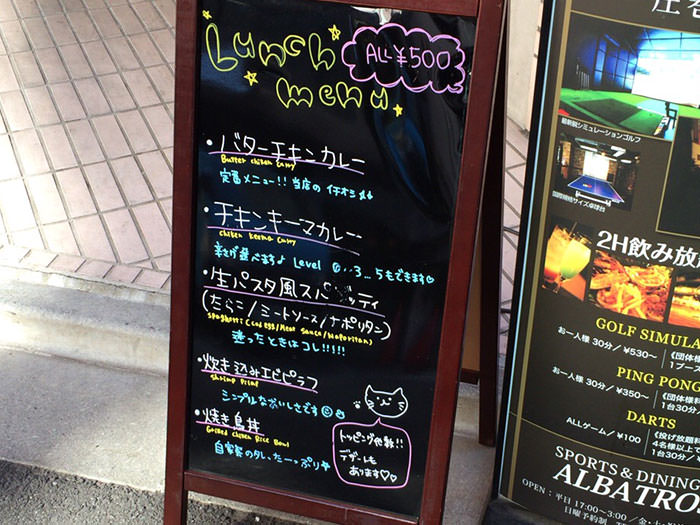 Lunch
menu
ALL¥500
・バターチキンカレー
Butter chicken curry
定番メニュー!! 当店の イチオシ
・チキンキーマカレー
chiken keema curry
辛さが選べます♪ Level 0...3...5もできます♡
・生パスタ風スパゲッティ
(たらこ/ミートソース/ナポリタン)
spaghetti (cod egg/Meat sauce/Naporitan)
迷ったときはコレ!!!!
・炊き込みエビピラフ
shrimp pilaf
シンプルなおいしさです☺
・焼き鳥丼
Grilled chiken Rice Bowl
自家製のタレ、たーっぷり
トッピング
デザートも
あります♡♡
最新鋭シミュレーションゴルフ
国際規格サイズ卓球台
2H飲み放
GOLF SIMULA
お一人様 30分/¥530~
《団体様
1ブース
PING PONG
お一人様 30分/¥350~
《団体様料
1台30分
DARTS
ALLゲーム/¥100
《投げ放題
4名様以上で
1台30分
SPORTS & DINING
ALBATRO
OPEN:平日 17:00~3:00
日曜予約制